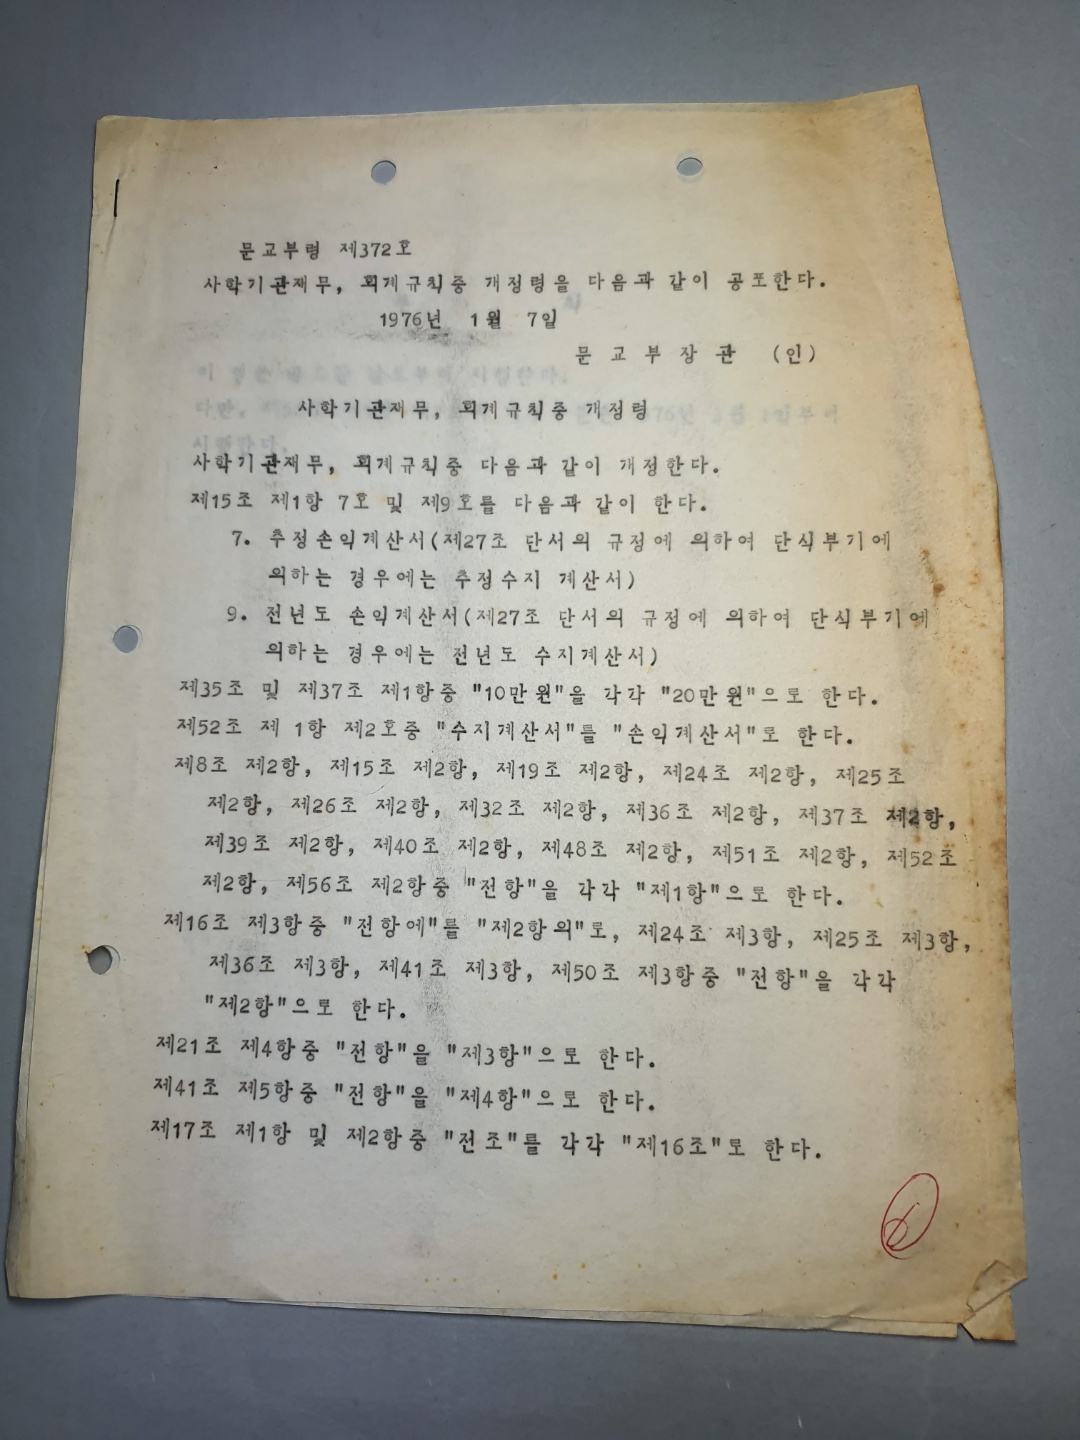 문교부령 제372호
사학기관재무, 회계규칙중 개정령을 다음과 같이 공포한다.
1976년 1월 7일
문 교 부 장 관 (인)
사학기관재무, 회계규칙중 개정령
사학기관재무, 회계규칙중 다음과 같이 개정한다.
제15조 제1항 7호 및 제9호를 다음과 같이 한다.
7. 추정손익계산서(제27조 단서의 규정에 의하여 단식부기에
의하는 경우에는 추정수지 계산서)
9. 전년도 손익계산서(제27조 단서의 규정에 의하여 단식부기에
의하는 경우에는 전년도 수지계산서)
제35조 및 제37조 제1항중 "10만원"을 각각 "20만원"으로 한다.
제52조 제 1항 제2호중 "수지계산서"를 "손익계산서"로 한다.
제8조 제2항, 제15조 제2항, 제19조 제2항, 제24조 제2항, 제25조
제2항, 제26조 제2항, 제32조 제2항, 제36조 제2항, 제37조 제2항,
제39조 제2항, 제40조 제2항, 제48조 제2항, 제51조 제2항, 제52조
제2항, 제56조 제2항중 "전항"을 각각 "제1항"으로 한다.
제16조 제3항중 "전항에"를 "제2항의"로, 제24조 제3항, 제25조 제3항,
제36조 제3항, 제41조 제3항, 제50조 제3항중 "전항"을 각각
"제2항"으로 한다.
제21조 제4항중 "전항"을 "제3항"으로 한다.
제41조 제5항중 "전항"을 "제4항"으로 한다.
제17조 제1항 및 제2항중 "전조"를 각각 "제16조"로 한다.